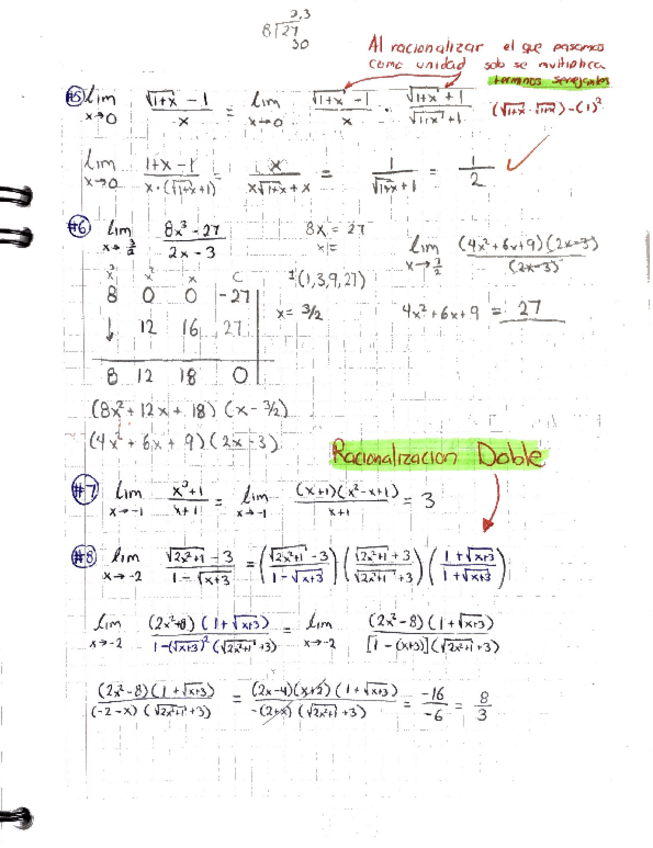 2,3
8√27
30
Al racionalizar el que pasamos
como unidad solo se multiplica
terminos semejantes
#5 lim x→0 (√(1+x) - 1)/x = lim x→0 (√(1+x) - 1)/x · (√(1+x) + 1)/(√(1+x) + 1) (√(1+x) · √(1+x)) - (1)²
lim x→0 (1+x-1)/(x·(√(1+x)+1)) = x/(x√(1+x)+x) = 1/(√(1+x)+1) = 1/2 ✓
#6 lim x→3/2 (8x³-27)/(2x-3) 8x = 27
x =
lim x→3/2 (4x²+6x+9)(2x-3)/(2x-3)
x³ x² x C
8 0 0 -27 ±(1,3,9,27)
↓ 12 16 27 x = 3/2 4x²+6x+9 = 27
8 12 18 0
(8x²+12x+18)(x-3/2)
(4x²+6x+9)(2x-3)
Racionalizacion Doble
#7 lim x→-1 (x³+1)/(x+1) = lim x→-1 (x+1)(x²-x+1)/(x+1) = 3
#8 lim x→-2 (√(2x²+1) - 3)/(1-√(x+3)) = ((√(2x²+1) - 3)/(1-√(x+3))) ((√(2x²+1) + 3)/(√(2x²+1) + 3)) ((1+√(x+3))/(1+√(x+3)))
lim x→-2 (2x²-8)(1+√(x+3))/(1-(√(x+3))² (√(2x²+1)+3)) = lim x→-2 (2x²-8)(1+√(x+3))/([1-(x+3)](√(2x²+1)+3))
(2x²-8)(1+√(x+3))/((-2-x)(√(2x²+1)+3)) = (2x-4)(x+2)(1+√(x+3))/(-(2+x)(√(2x²+1)+3)) = -16/-6 = 8/3